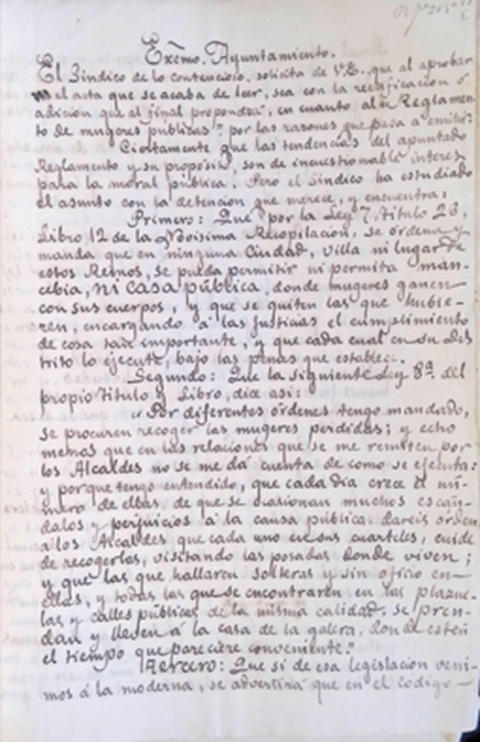 Excmo. Ayuntamiento.
El Síndico de lo contencioso, solicita de V.E. que al aprobar
el acta que se acaba de leer, sea con la rectificacion ó
adicion que al final propondrá, en cuanto al "Reglamen-
to de mugeres públicas" por las razones que pasa á emitir:
Ciertamente que las tendencias del apuntado
Reglamento y su propósito, son de incuestionable interes
para la moral pública. Pero el Síndico ha estudiado
el asunto con la detencion que merece, y encuentra:
Primero: Que por la Ley 7, título 26,
Libro 12 de la Novísima Recopilacion, se ordena y
manda que en ninguna Ciudad, villa ni lugar de
estos Reinos, se pueda permitir ni permita man-
cebia, ni casa pública, donde mugeres ganen
con sus cuerpos, y que se quiten las que hubie-
ren, encargando á las justicias el cumplimiento
de cosa tan importante, y que cada cual en su dis-
trito lo ejecute, bajo las penas que establece.
Segundo: Que la siguiente Ley 8ª del
propio título y Libro, dice asi:
"Por diferentes órdenes tengo mandado,
se procuren recoger las mugeres perdidas; y echo
menos que en las relaciones que se me remiten por
los Alcaldes no se me dá cuenta de como se ejecuta:
y porque tengo entendido, que cada dia crece el nú-
mero de ellas, de que se ocasionan muchos escán-
dalos y perjuicios á la causa pública, dareis orden
á los Alcaldes que cada uno en sus cuarteles, cuide
de recogerlas, visitando las posadas donde viven;
y que las que hallaren solteras y sin oficio en
ellas, y todas las que se encontraren en las plazue-
las y calles públicas de la misma calidad, se pren-
dan y lleven á la casa de la galera, donde esten
el tiempo que pareciere conveniente."
Tercero: Que si de esa legislacion veni-
mos á la moderna, se advertirá que en el código